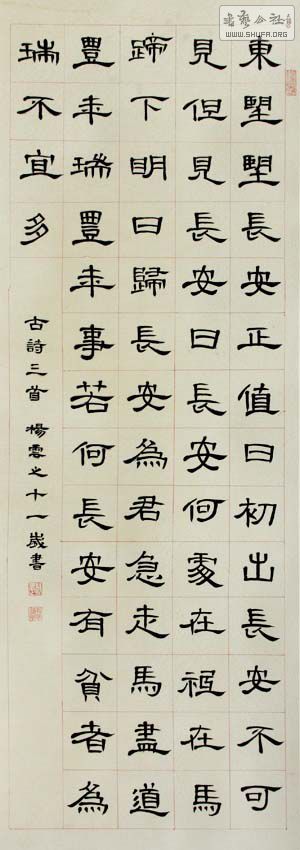 東望望長安正值日初出長安不可
見但見長安日長安何處在祗在馬
蹄下明日歸長安為君急走馬盡道
豐年瑞豐年事若何長安有貧者為
瑞不宜多
古詩三首 楊雲之十一歲書
书艺公社
WWW.SHUFA.ORG